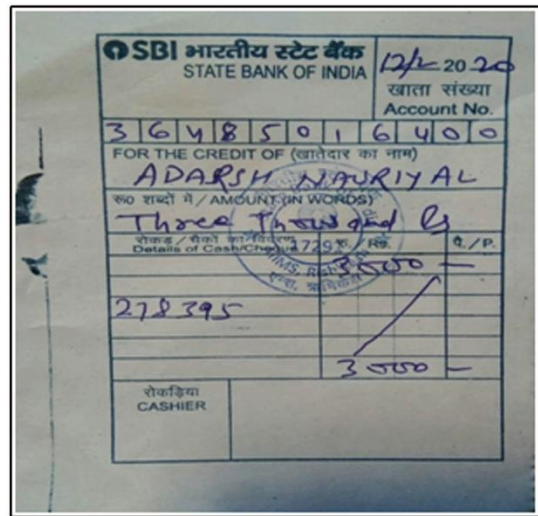 SBI भारतीय स्टेट बैंक
STATE BANK OF INDIA
12/2 2020
खाता संख्या
Account No.
36485016400
FOR THE CREDIT OF (खातेदार का नाम)
ADARSH NAURIYAL
रू0 शब्दों में / AMOUNT (IN WORDS)
Three Thousand Rs
रोकड़ / चैकों का विवरण रु. / Rs. पै. / P.
Details of Cash/Cheque
3000 —
278395
3000 —
रोकड़िया
CASHIER